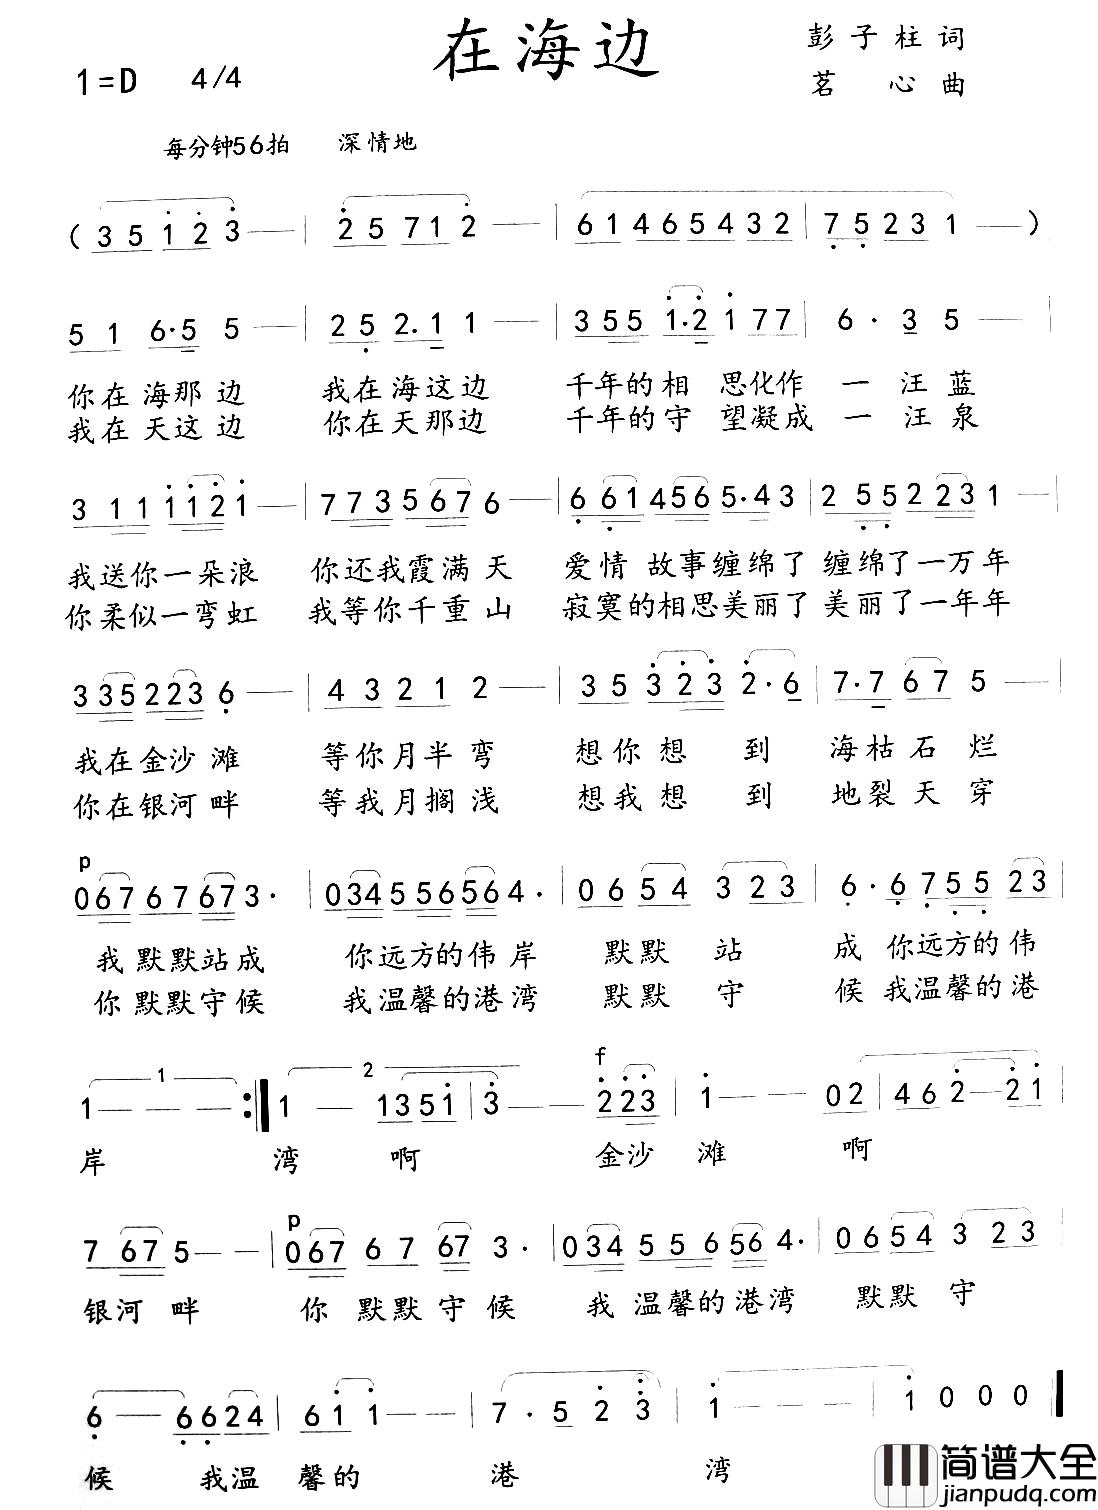 在海边
彭子柱词
1=D 4/4
茗 心曲
每分钟56拍 深情地
( 3 5 1 2 3 — | 2 5 7 1 2 — | 6 1 4 6 5 4 3 2 | 7 5 2 3 1 — )
5 1 6·5 5 — | 2 5 2.1 1 — | 3 5 5 1·2 1 7 7 | 6 · 3 5 — |
你在海那边 我在海这边 千年的相 思化作 一 汪蓝
我在天这边 你在天那边 千年的守 望凝成 一 汪泉
3 1 1 1 1 2 1 — | 7 7 3 5 6 7 6 — | 6 6 1 4 5 6 5·4 3 | 2 5 5 2 2 3 1 — |
我送你一朵浪 你还我霞满天 爱情 故事缠绵了 缠绵了一万年
你柔似一弯虹 我等你千重山 寂寞的相思美丽了 美丽了一年年
3 3 5 2 2 3 6 — | 4 3 2 1 2 — | 3 5 3 2 3 2·6 | 7·7 6 7 5 — |
我在金沙滩 等你月半弯 想你想 到 海枯石烂
你在银河畔 等我月搁浅 想我想 到 地裂天穿
p
0 6 7 6 7 6 7 3· | 0 3 4 5 5 6 5 6 4· | 0 6 5 4 3 2 3 | 6·6 7 5 5 2 3 |
我默默站成 你远方的伟岸 默默 站 成 你远方的伟
你默默守候 我温馨的港湾 默默 守 候 我温馨的港
1 2 f
1 — — — :‖ 1 — 1 3 5 1 | 3 — — 2 2 3 | 1 — — 0 2 | 4 6 2 — 2 1 |
岸 湾 啊 金沙 滩 啊
p
7 6 7 5 — — | 0 6 7 6 7 6 7 3· | 0 3 4 5 5 6 5 6 4· | 0 6 5 4 3 2 3
银河 畔 你默默守候 我温馨的港湾 默默 守
6 — 6 6 2 4 | 6 1 1 — — | 7 · 5 2 3 | 1 — — — | 1 0 0 0 ‖
候 我温 馨的 港 湾
简谱大全
jianpudq.com